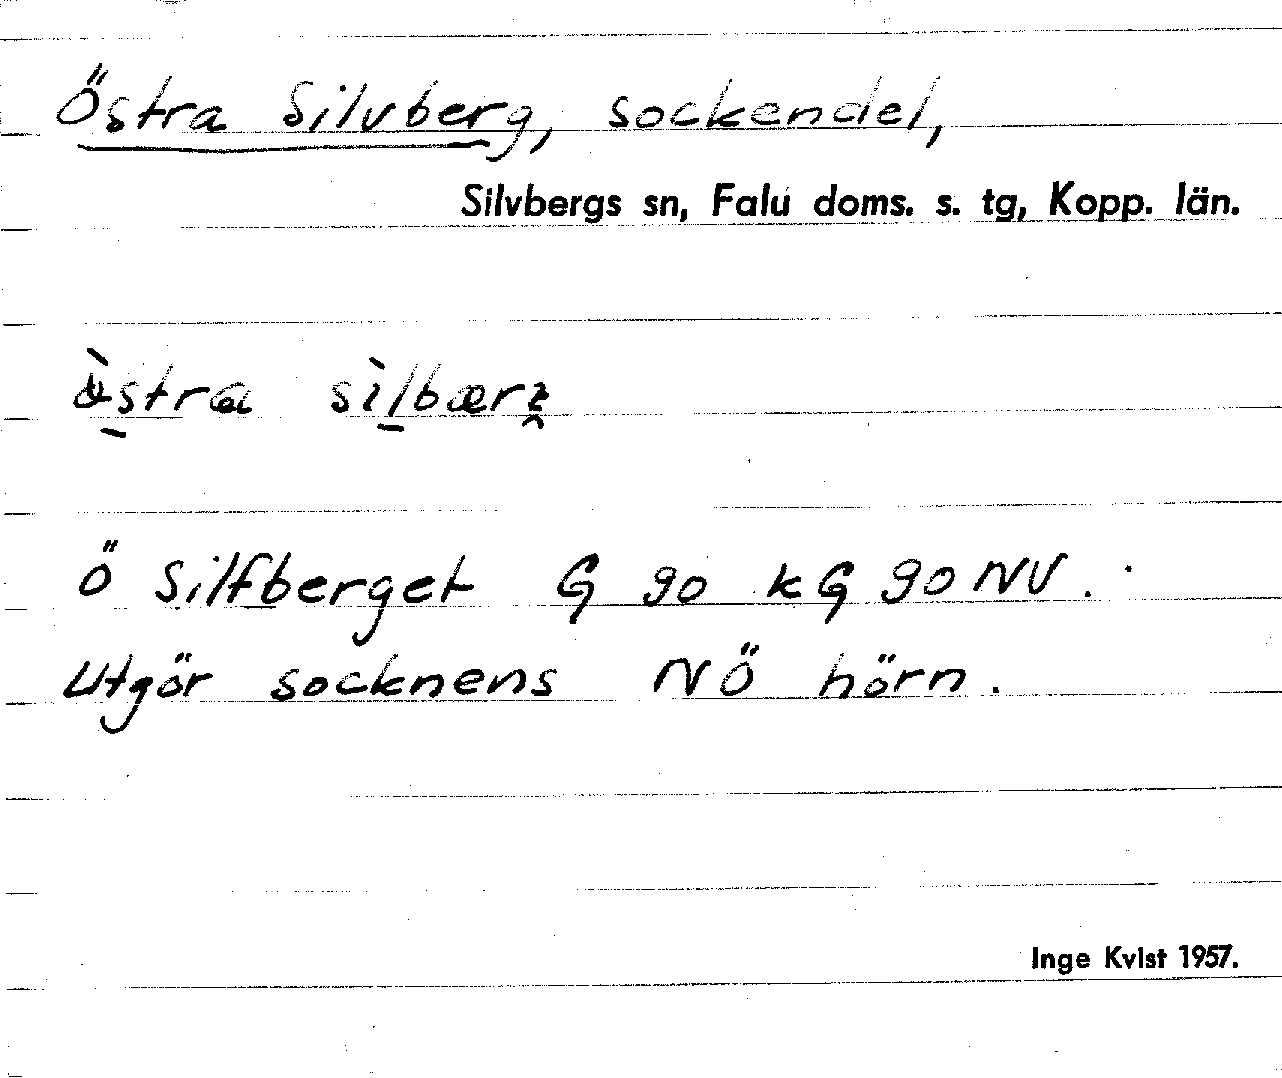 Östra Silvberg, sockendel,
Silvbergs sn, Falu doms. s. tg, Kopp. län.
Ö Silfberget G 90 kG 90 NV.
Utgör socknens NÖ hörn.
Inge Kvist 1957.